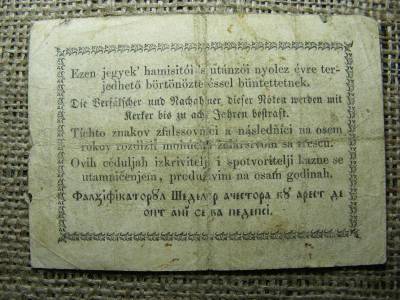 Ezen jegyek' hamisítói 's utánzói nyolcz évre ter-
jedhető börtönöztetéssel büntettetnek.
Die Verfälscher und Nachahmer dieser Noten werden mit
Kerker bis zu acht Jahren bestraft.
Tíchto znakov zfalssovníci a následníci na osem
rokov
Ovih céduljah izkrivitelji i spotvoritelji kazne se
utamničenjem, produživim na osam godinah.
Фалцификаторꙋл Шеделор ачестора кꙋ арест де
опт анĭ се ва педепсі.